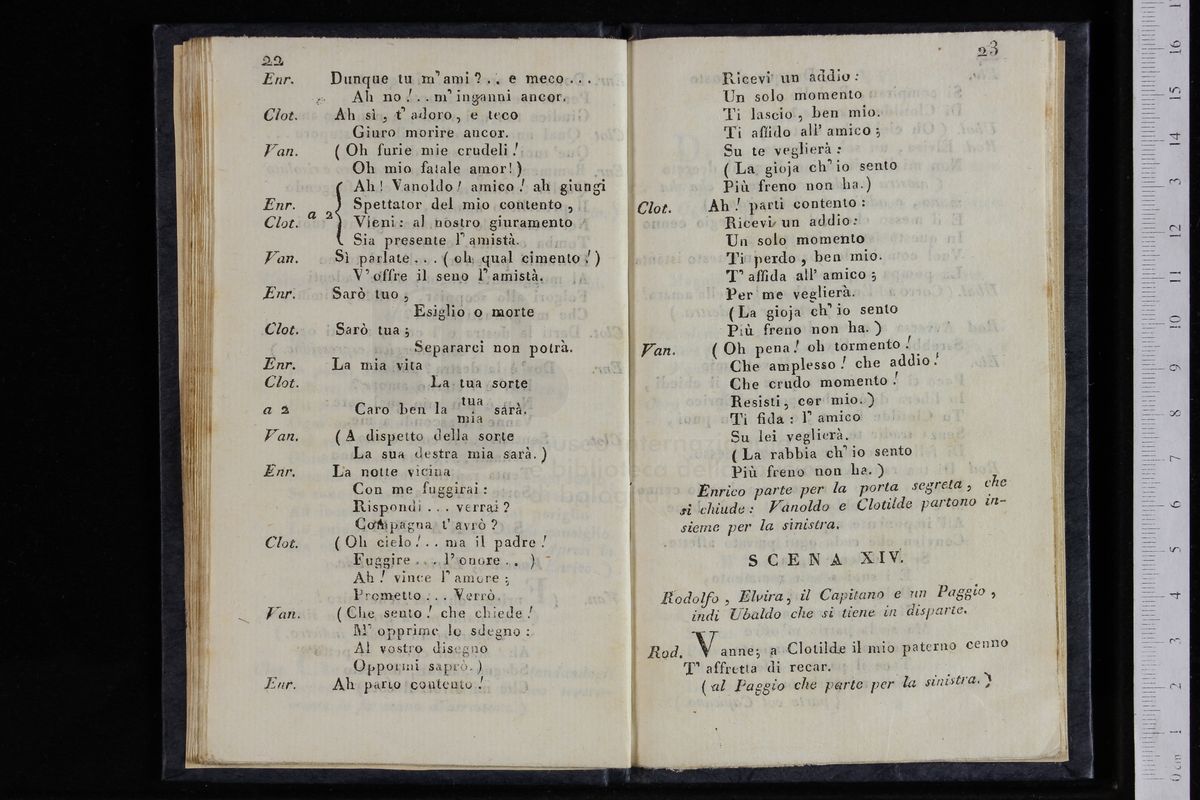 22
Enr. Dunque tu m'ami ? . . e meco . . .
Ah no ! . . m'inganni ancor.
Clot. Ah sì , t'adoro , e teco
Giuro morire ancor.
Van. ( Oh furie mie crudeli !
Oh mio fatale amor! )
Ah! Vanoldo ! amico ! ah giungi
Enr. Spettator del mio contento ,
Clot. a 2 Vieni : al nostro giuramento
Sia presente l'amistà.
Van. Sì parlate . . . ( oh qual cimento ! )
V'offre il seno l'amistà.
Enr. Sarò tuo ,
Esiglio o morte
Clot. Sarò tua ;
Separarci non potrà.
Enr. La mia vita
Clot. La tua sorte
a 2 Caro ben la tua sarà.
mia
Van. ( A dispetto della sorte
La sua destra mia sarà. )
Enr. La notte vicina
Con me fuggirai :
Rispondi . . . verrai ?
Compagna t'avrò ?
Clot. ( Oh cielo ! . . ma il padre !
Fuggire . . . l'onore . . )
Ah ! vince l'amore ;
Prometto . . . Verrò.
Van. ( Che sento ! che chiede !
M'opprime lo sdegno :
Al vostro disegno
Oppormi saprò. )
Enr. Ah parto contento !
23
Ricevi un addio :
Un solo momento
Ti lascio , ben mio.
Ti affido all'amico ;
Su te veglierà :
( La gioja ch'io sento
Più freno non ha. )
Clot. Ah ! parti contento :
Ricevi un addio :
Un solo momento
Ti perdo , ben mio.
T'affida all'amico ;
Per me veglierà.
( La gioja ch'io sento
Più freno non ha. )
Van. ( Oh pena ! oh tormento !
Che amplesso ! che addio !
Che crudo momento !
Resisti , cor mio. )
Ti fida : l'amico
Su lei veglierà.
( La rabbia ch'io sento
Più freno non ha. )
Enrico parte per la porta segreta , che
si chiude : Vanoldo e Clotilde partono in-
sieme per la sinistra.
SCENA XIV.
Rodolfo , Elvira , il Capitano e un Paggio ,
indi Ubaldo che si tiene in disparte.
Rod. Vanne ; a Clotilde il mio paterno cenno
T'affretta di recar.
( al Paggio che parte per la sinistra. )
0 cm 1 2 3 4 5 6 7 8 9 10 11 12 13 14 15 16